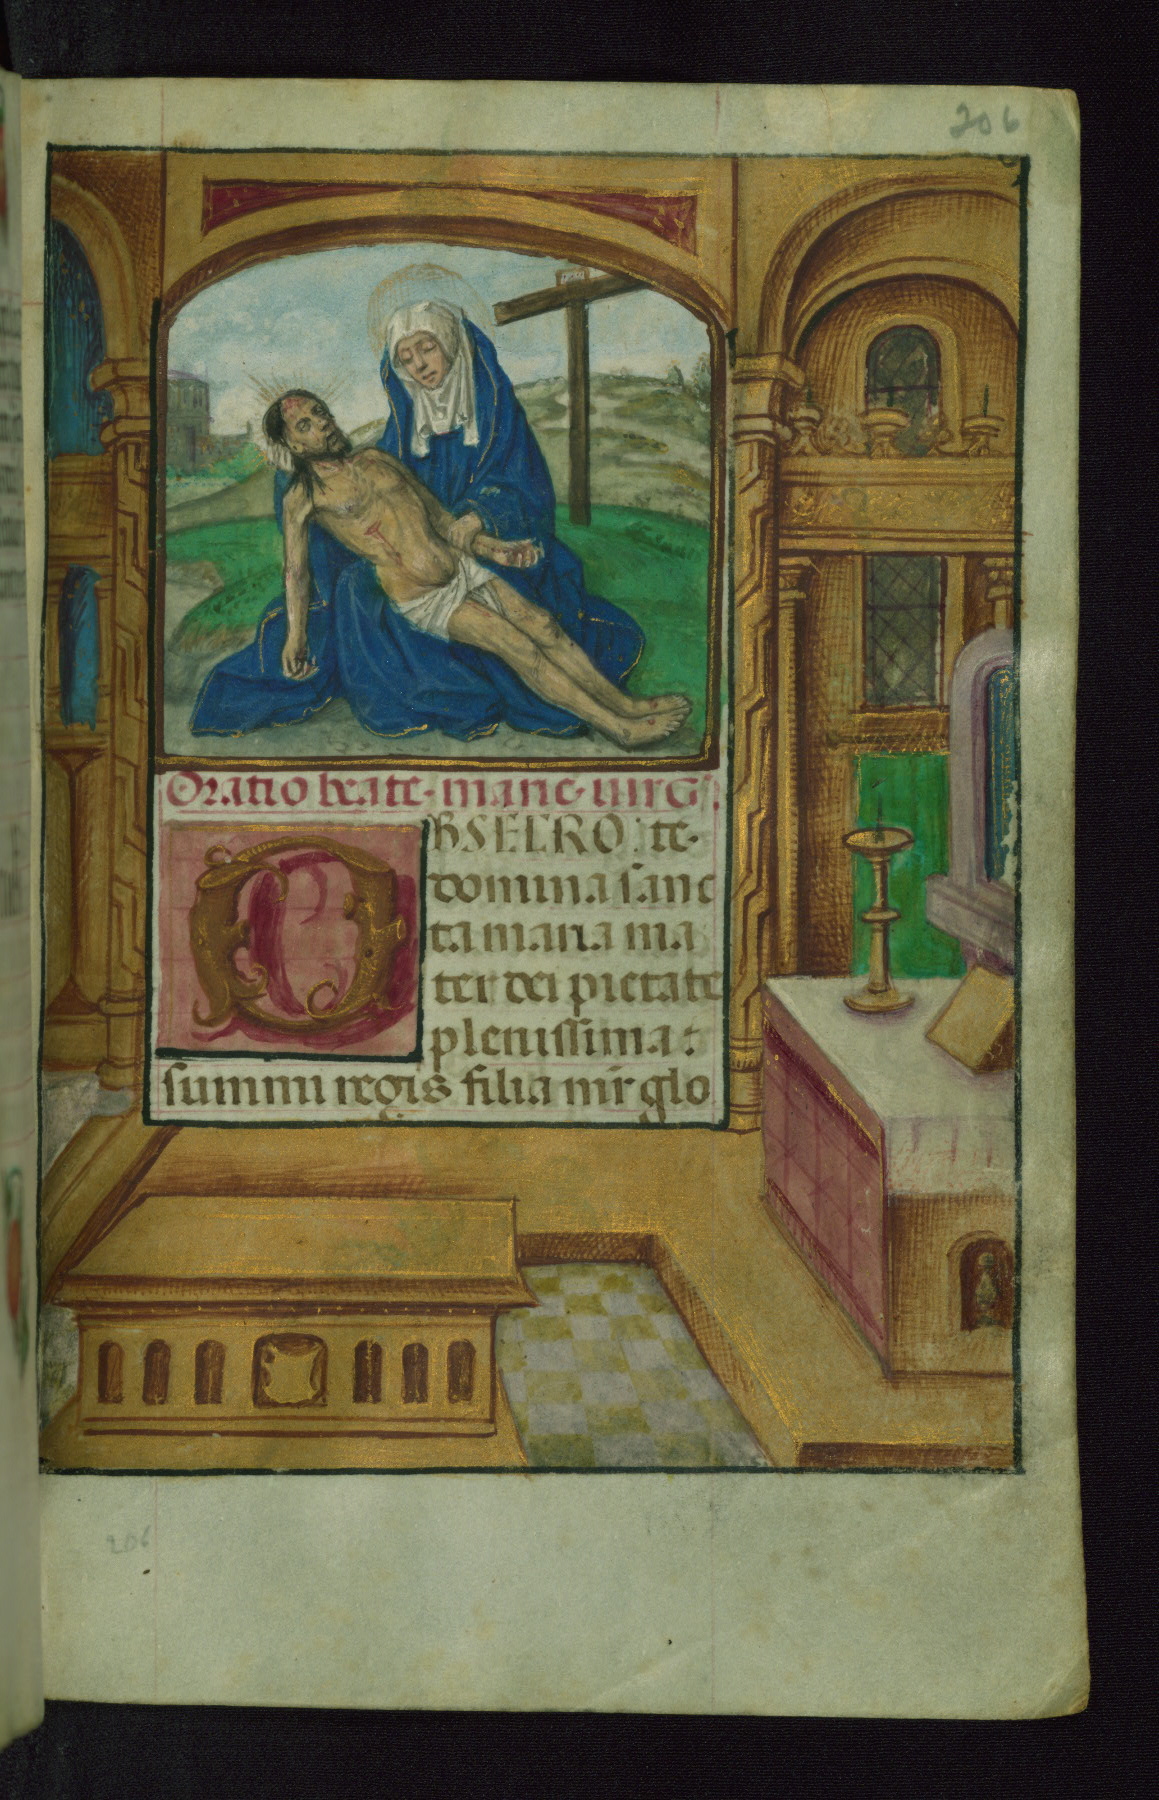 206
Oratio beate · marie · uirg
OBSECRO : te ·
domina sanc
ta maria ma
ter dei pietate
plenissima :
summi regis filia mr̄ glo
206